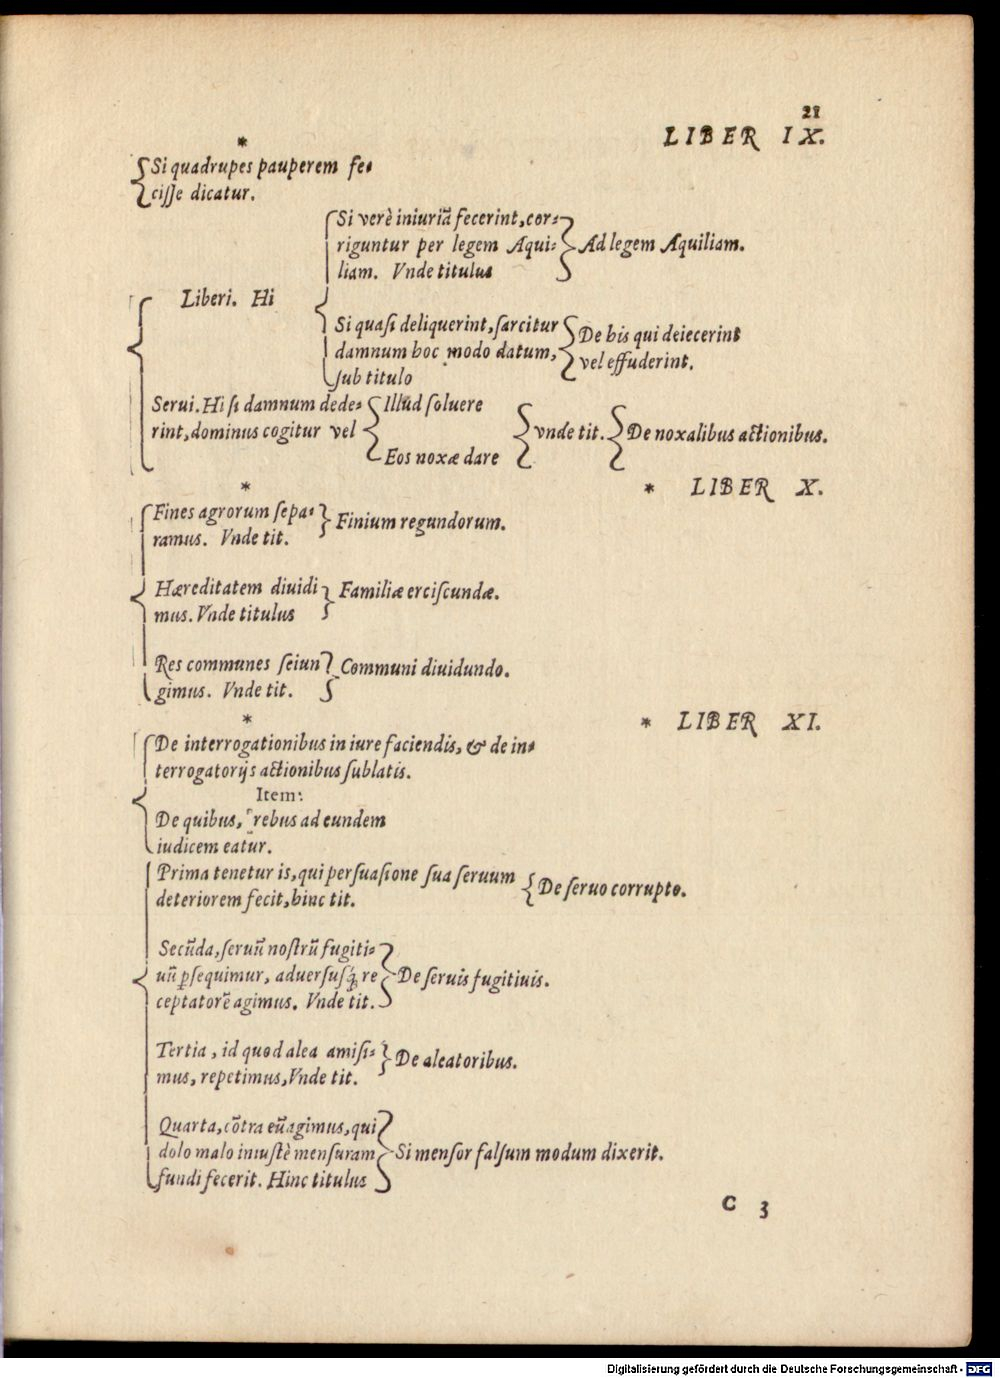 21
LIBER IX.
*
Si quadrupes pauperem fe-
cisse dicatur.
Si verè iniuriã fecerint, cor-
riguntur per legem Aqui-
liam. Vnde titulus
Ad legem Aquiliam.
Liberi. Hi
Si quasi deliquerint, sarcitur
damnum hoc modo datum,
sub titulo
De his qui deiecerint
vel effuderint.
Serui. Hi si damnum dede-
rint, dominus cogitur vel
Illud soluere
Eos noxæ dare
vnde tit.
De noxalibus actionibus.
*
* LIBER X.
Fines agrorum sepa-
ramus. Vnde tit.
Finium regundorum.
Hæreditatem diuidi
mus. Vnde titulus
Familiæ erciscundæ.
Res communes seiun
gimus. Vnde tit.
Communi diuidundo.
*
* LIBER XI.
De interrogationibus in iure faciendis, & de in-
terrogatorijs actionibus sublatis.
Item:
De quibus, rebus ad eundem
iudicem eatur.
Prima tenetur is, qui persuasione sua seruum
deteriorem fecit, hinc tit.
De seruo corrupto.
Secũda, seruũ nostrũ fugiti-
uũ ꝑsequimur, aduersusq́ꝫ re
ceptatorẽ agimus. Vnde tit.
De seruis fugitiuis.
Tertia, id quod alea amisi-
mus, repetimus, Vnde tit.
De aleatoribus.
Quarta, cõtra eũ agimus, qui
dolo malo iniustè mensuram
fundi fecerit. Hinc titulus
Si mensor falsum modum dixerit.
C 3
Digitalisierung gefördert durch die Deutsche Forschungsgemeinschaft - DFG